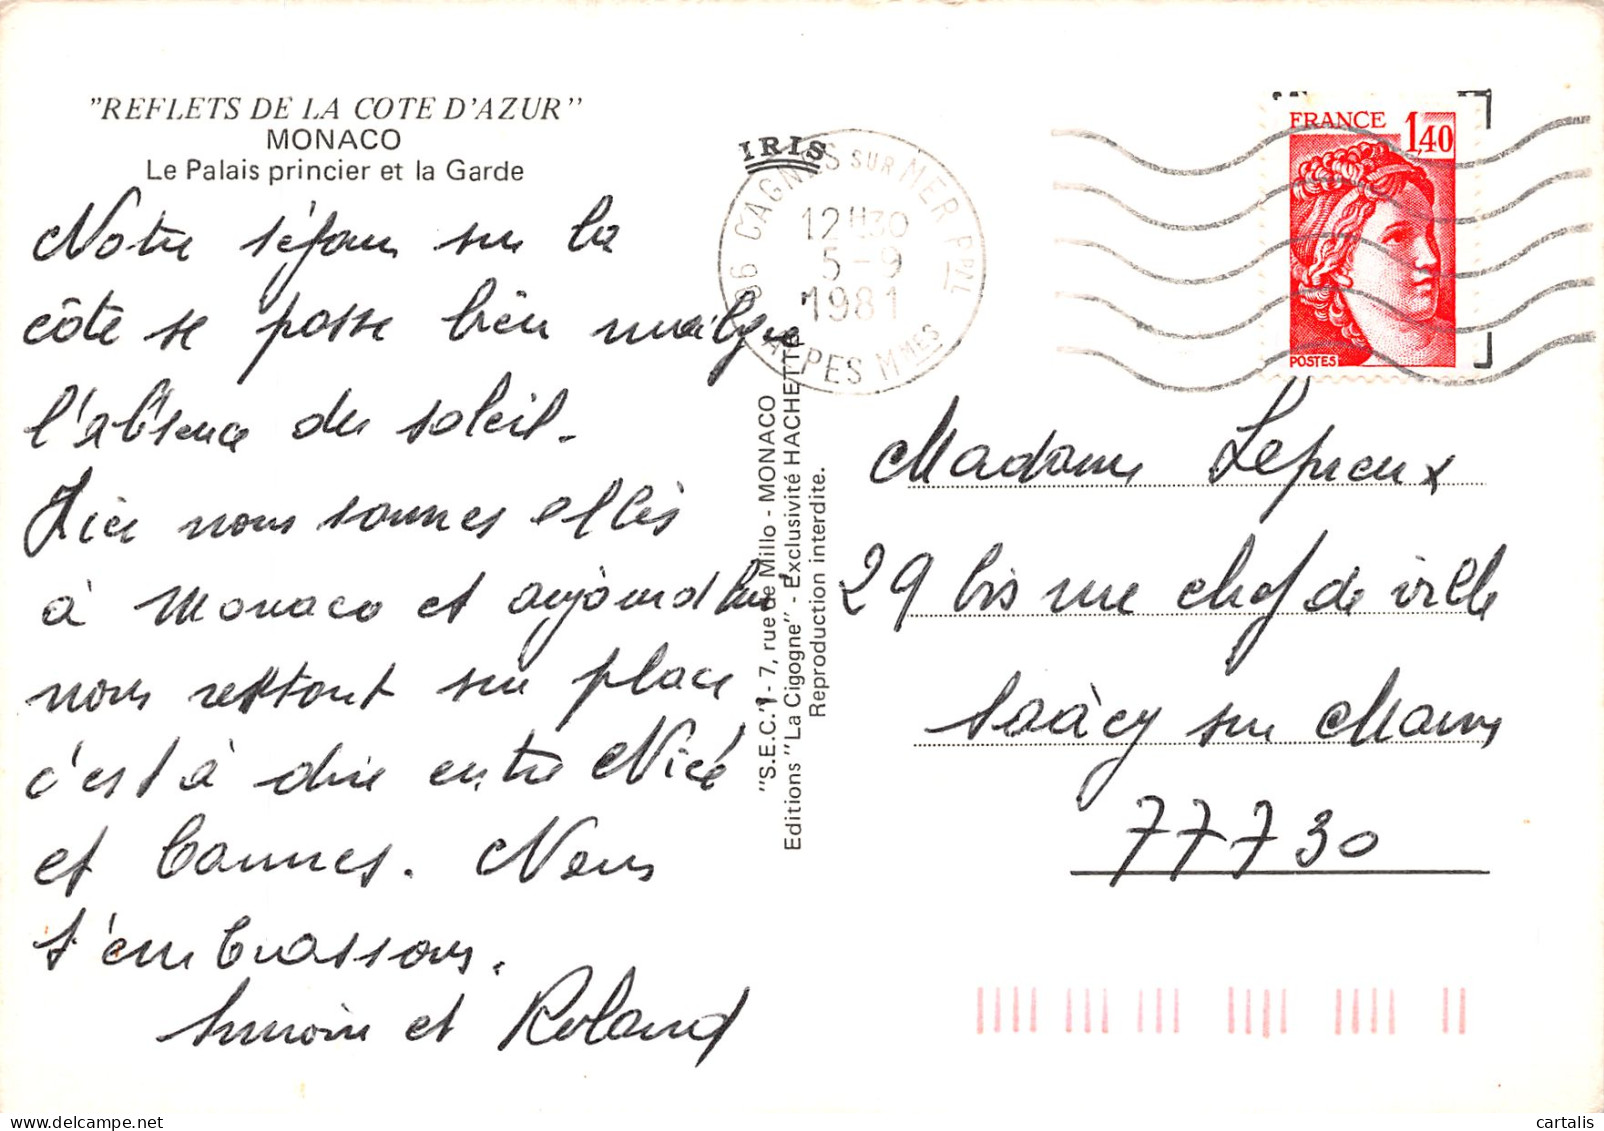 "REFLETS DE LA COTE D'AZUR"
MONACO
Le Palais princier et la Garde
Notre séjour sur la
côte se passe bien malgré
l'absence du soleil.
Hier nous sommes allés
à Monaco et aujourd'hui
nous restons sur place
c'est à dire entre Nice
et Cannes. Nous
t'embrassons.
et Roland
IRIS
06 CAGNES SUR MER PPAL
12H30
5-9
1981
ALPES MMES
FRANCE 1,40
POSTES
"S.E.C." - 7, rue de Millo - MONACO
Editions "La Cigogne" - Exclusivité HACHETTE
Reproduction interdite.
Madame Lepreux
29 bis rue chef de ville
Saàcy sur Marne
77730
cartalis